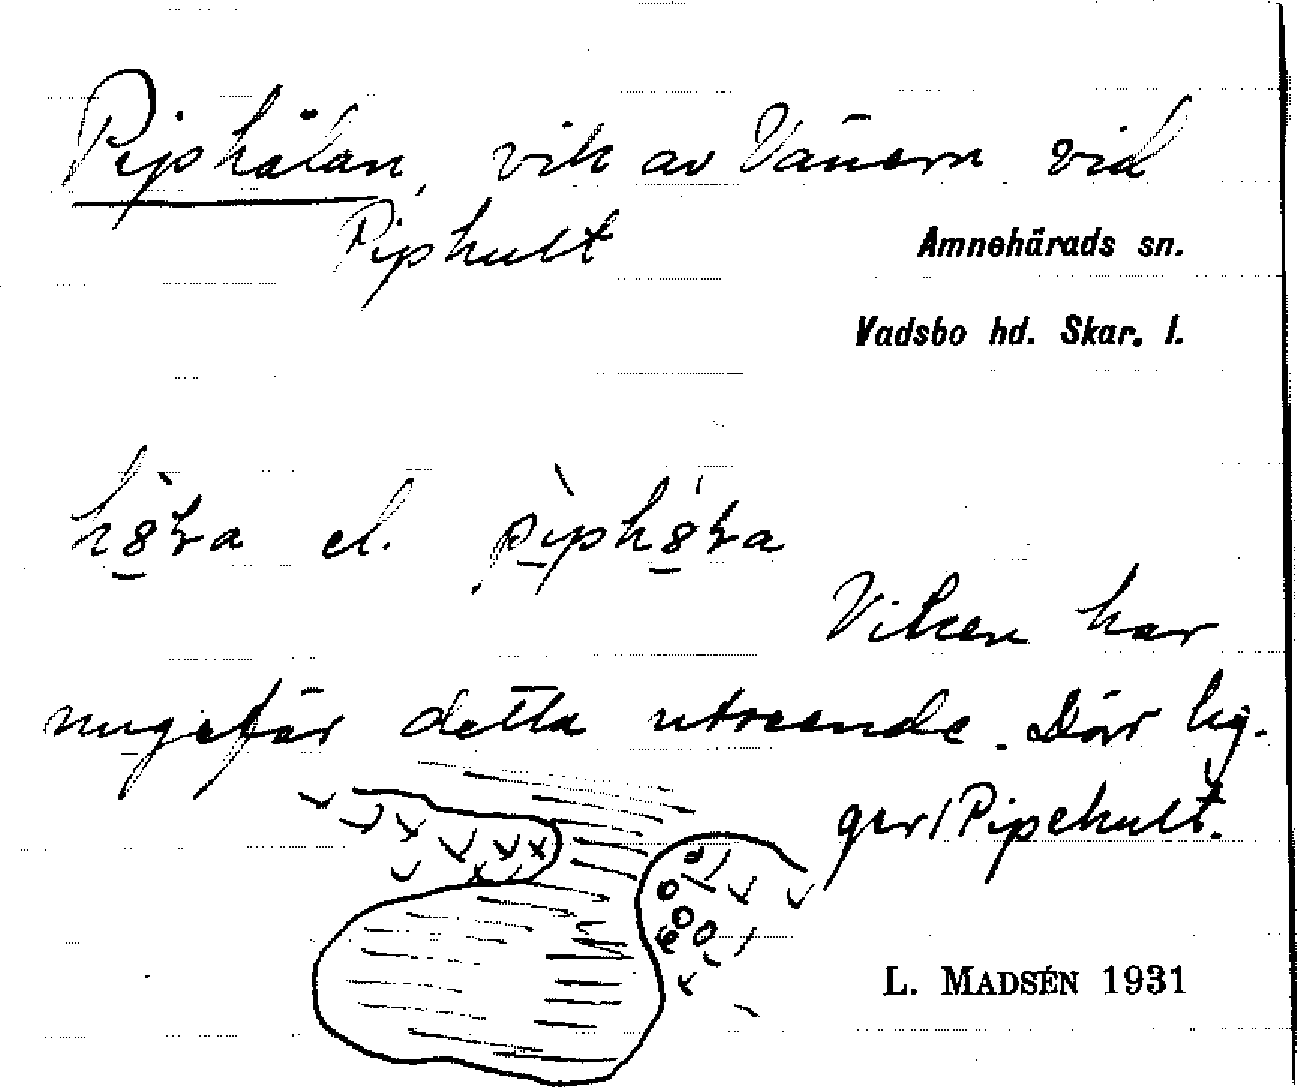 Piphålan, vik av Vänern vid
Piphult
Amnehärads sn.
Vadsbo hd. Skar. l.
el.
Viken har
ungefär detta utseende. Där lig-
ger Pipehult.
L. MADSÉN 1931